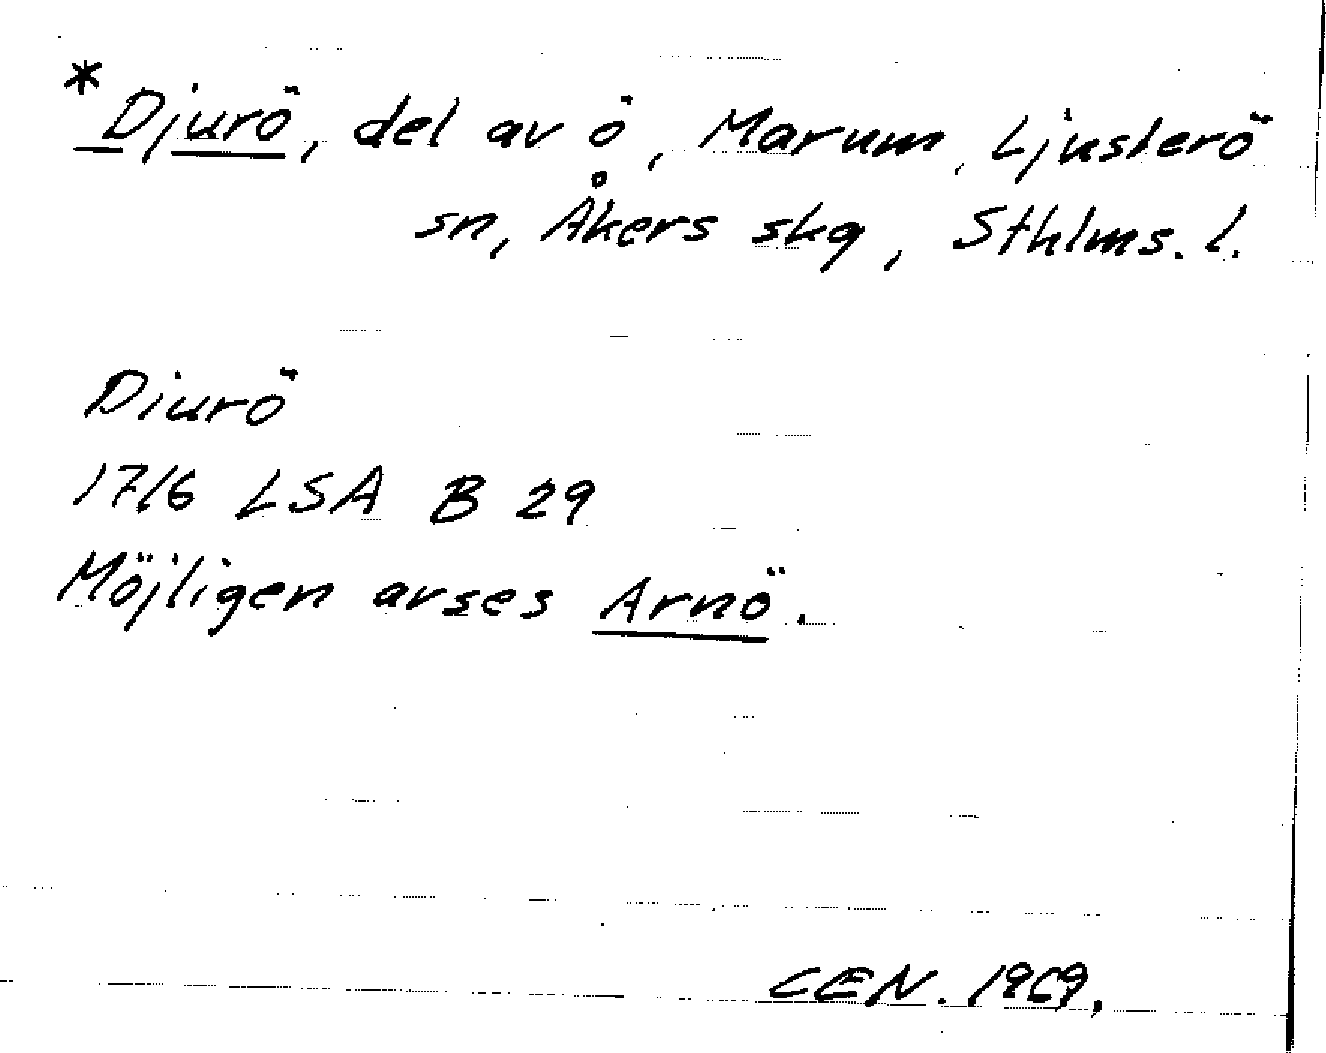 *Djurö, del av ö, Marum, Ljusterö
sn, Åkers skg, Sthlms. l.
Diurö
1716 LSA B 29
Möjligen avses Arnö.
CEN. 1969.